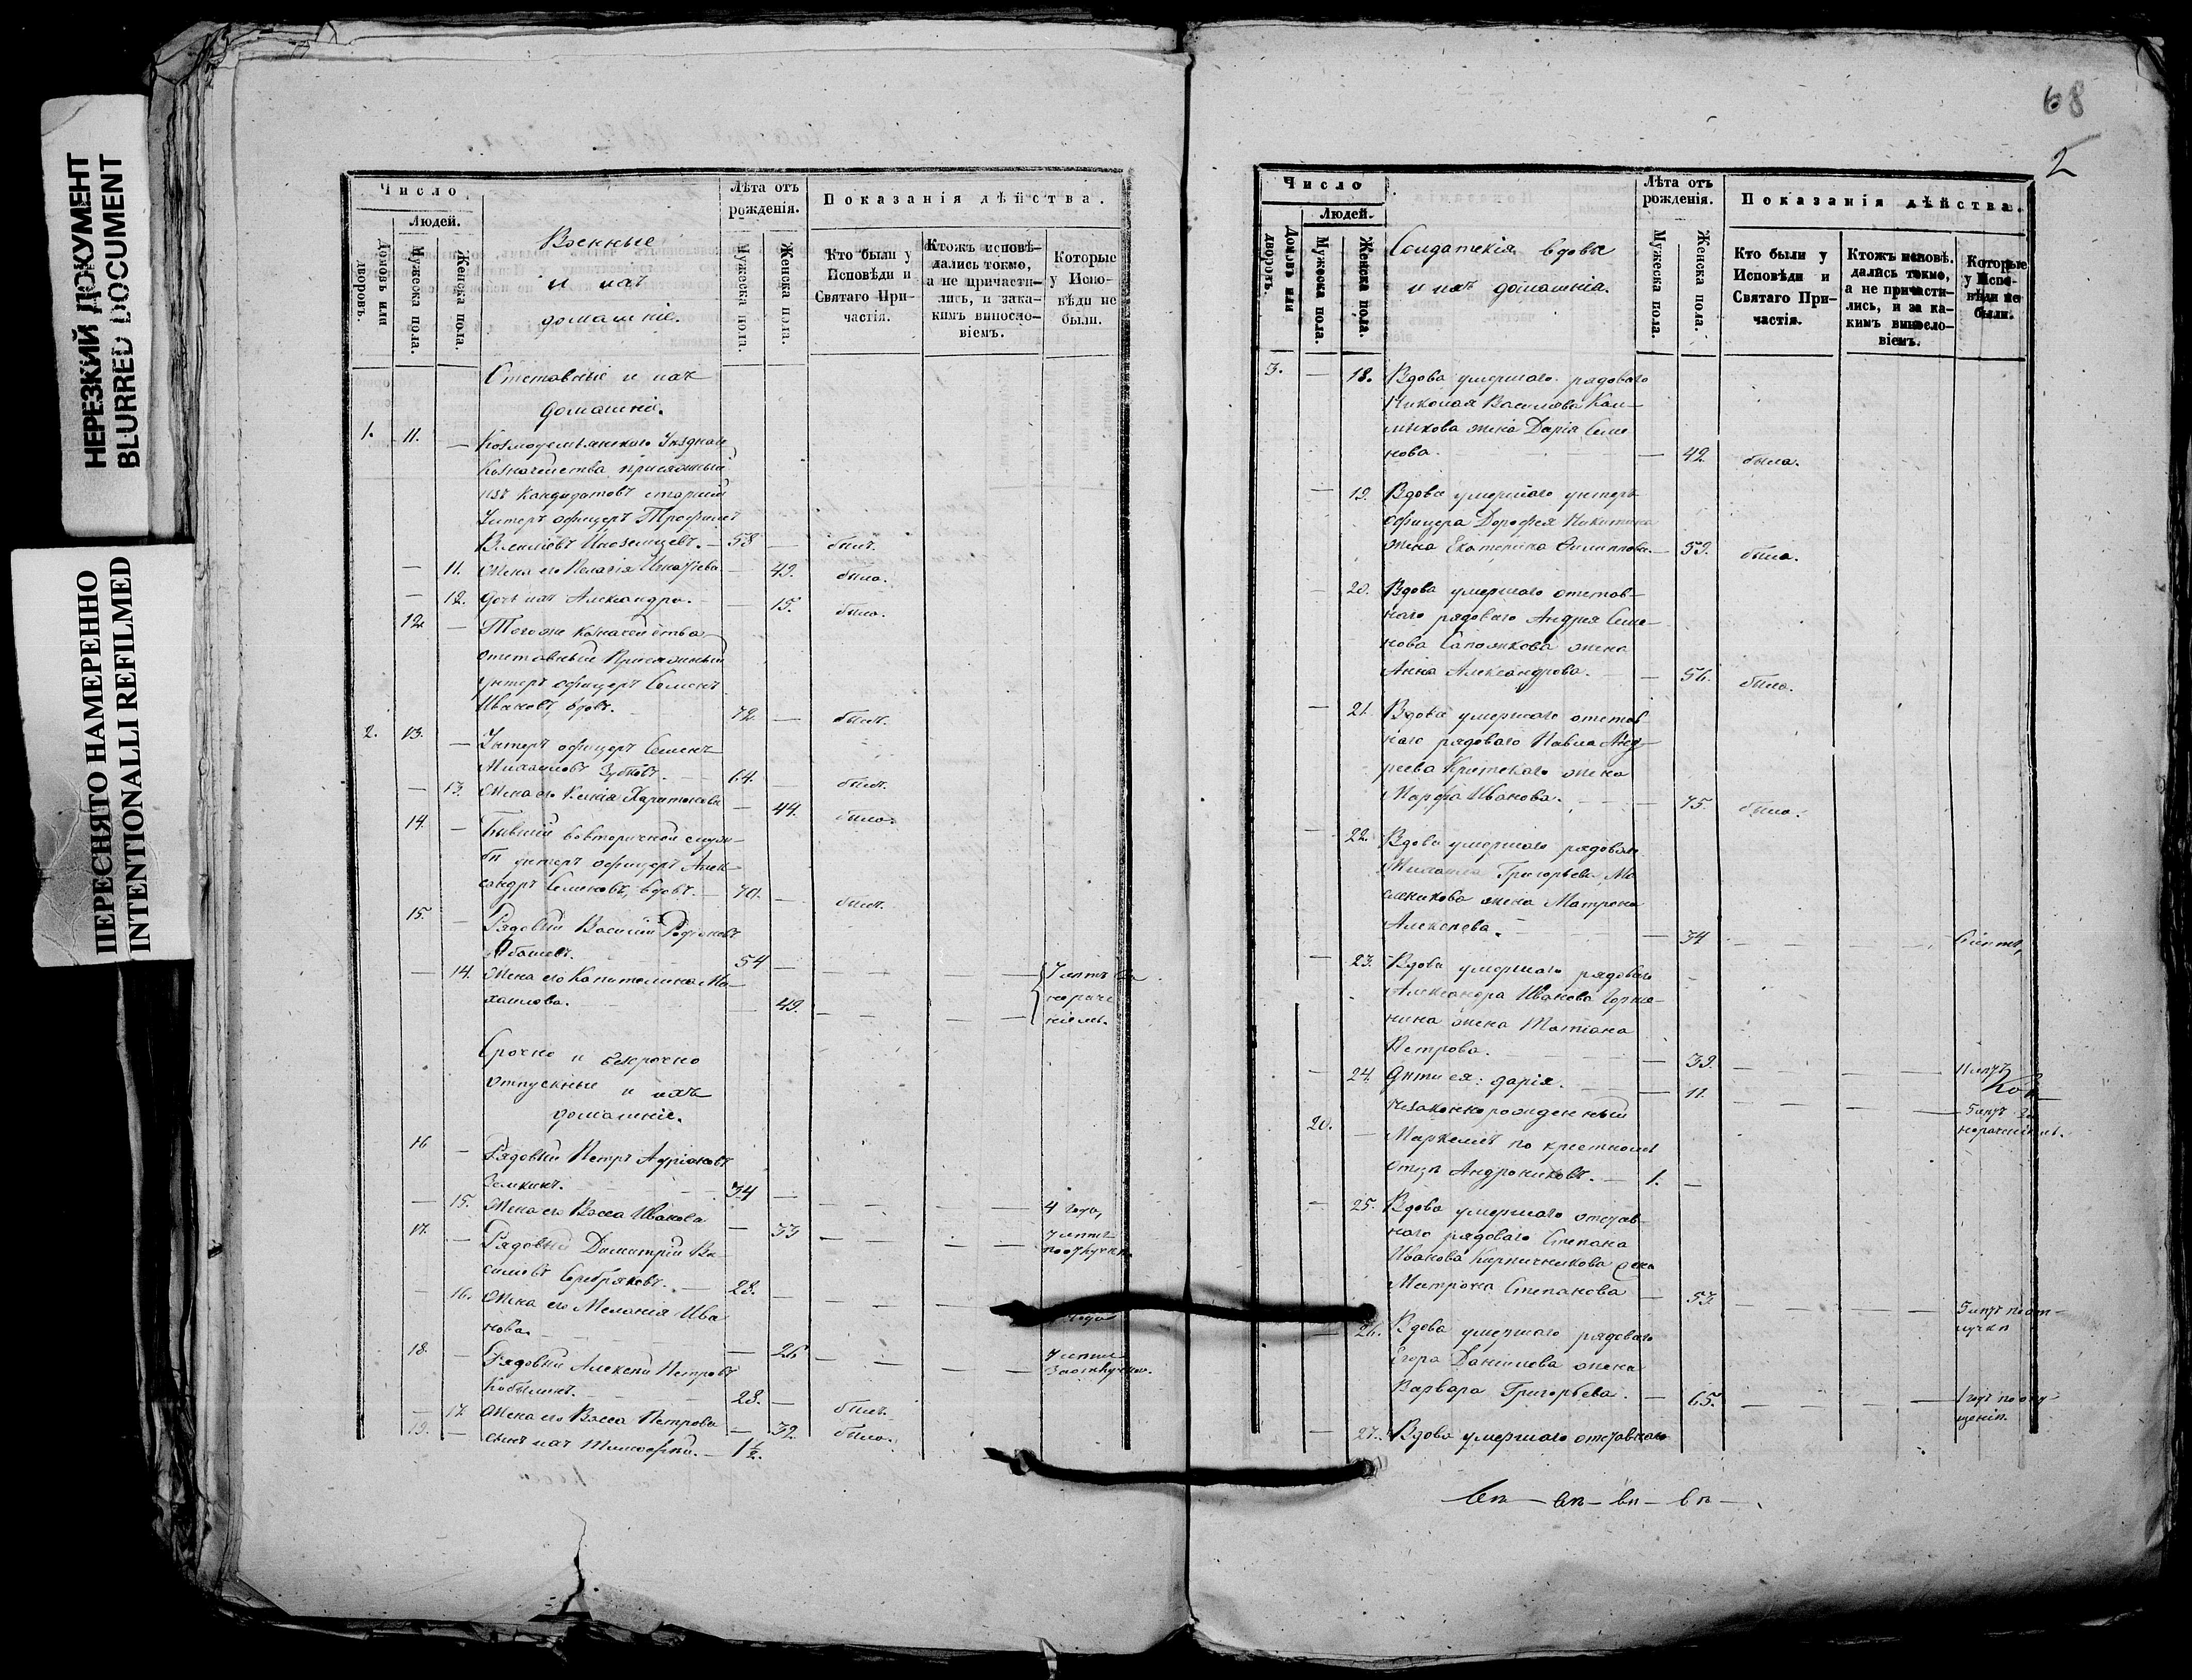 НЕРЕЗКИЙ ДОКУМЕНТ
BLURRED DOCUMENT
ПЕРЕСНЯТО НАМЕРЕННО
INTENTIONALLI REFILMED
Число
Людей.
Домовъ или дворовъ.
Мужеска пола.
Женска пола.
Военные
и ихъ
домашніе.
Лѣта отъ рожденія.
Мужеска пола.
Женска пола.
Показанія дѣйства.
Кто были у Исповѣди и Святаго Причастія.
Ктожъ исповѣдались токмо, а не причастились, и за какимъ винословіемъ.
Которые у Исповѣди не были.
Отставные и ихъ
домашніе.
1. 11. — Козмодемьянскаго Уѣзднаго
Казначейства присяжный
изъ кандидатовъ старшій
Унтеръ офицеръ Трофимъ
Васильевъ Иноземцевъ. — 58 — былъ.
— 11. Жена его Пелагія Игнатьева — 49. была.
— 12. Дочь ихъ Александра. — 15. была.
12 — Тогоже Казначейства
отставный Присяжный
унтеръ офицеръ Семенъ
Ивановъ, вдовъ. 72. — былъ.
2. 13. — Унтеръ офицеръ Семенъ
Михайловъ Зубковъ. — 64. былъ.
— 13. Жена его Ксенія Харитонова — 44. была.
14. — Бывшій во вторичной служ-
бѣ унтеръ офицеръ Алек-
сандръ Семеновъ, вдовъ. — 70. — былъ.
15. — Рядовый Василій Родіоновъ
Абашевъ. 54 —
— 14. Жена его Капитолина Ми-
хайлова. — 49. — — 7 лѣтъ за
нераче
ніемъ.
Срочно и безсрочно
отпускные и ихъ
домашніе.
16 — Рядовый Петръ Адріановъ
34 —
— 15. Жена его Васса Иванова — 33 4 года,
17. — Рядовый Димитрій Ва-
сильевъ Серебряковъ. — 28. — 7 лѣтъ
по отлучкѣ
— 16. Жена его Меланія Ива
нова. — 26 года
18. — Рядовый Алексѣй Петровъ
Кобылинъ. 28. — былъ. 7 лѣтъ
— 17. Жена его Васса Петрова — 32. была.
19. — сынъ ихъ Тимофей. — 1½.
68
2
Число
Людей.
Домовъ или дворовъ.
Мужеска пола.
Женска пола.
Солдатскія вдовы
и ихъ домашнія.
Лѣта отъ рожденія.
Мужеска пола.
Женска пола.
Показанія дѣйства.
Кто были у Исповѣди и Святаго Причастія.
Ктожъ исповѣдались токмо, а не причастились, и за какимъ винословіемъ.
Которые у Исповѣди не были.
3. — 18. Вдова умершаго рядоваго
Николая Васильева Кал-
мыкова жена Дарія Семе
нова. — 42 была.
— 19. Вдова умершаго унтеръ
офицера Дорофея Никитина
жена Екатерина Филиппова — 59. была.
— 20. Вдова умершаго отстав-
наго рядоваго Андрея Семе-
нова Сапожкова жена
Анна Александрова. — 56. была.
— 21. Вдова умершаго отстав
наго рядоваго Павла Анд-
реева жена
Марфа Иванова. — 75. была.
— 22. Вдова умершаго рядоваго
Михаила Григорьева Ма
сленикова жена Матрена
Алексѣева. — 34 — — 6 лѣтъ,
— 23. Вдова умершаго рядоваго
Александра Иванова Горше-
нина жена Татіана
Петрова. — 39. — — 11 лѣтъ
— 24. Дѣти ея: Дарія. — 11. — — 5 лѣтъ за
нераченіемъ.
незаконнорожденный
20. — Маркелъ по крестномъ
отцѣ Андрониковъ. — 1. —
— 25. Вдова умершаго отстав-
наго рядоваго Степана
Иванова Кирпичникова жена
Матрона Степанова — 53. — — 5 лѣтъ по от-
лучкѣ
— 26. Вдова умершаго рядоваго
Егора Данилова жена
Варвара Григорьева. — 65. — —
— 27. Вдова умершаго отставнаго